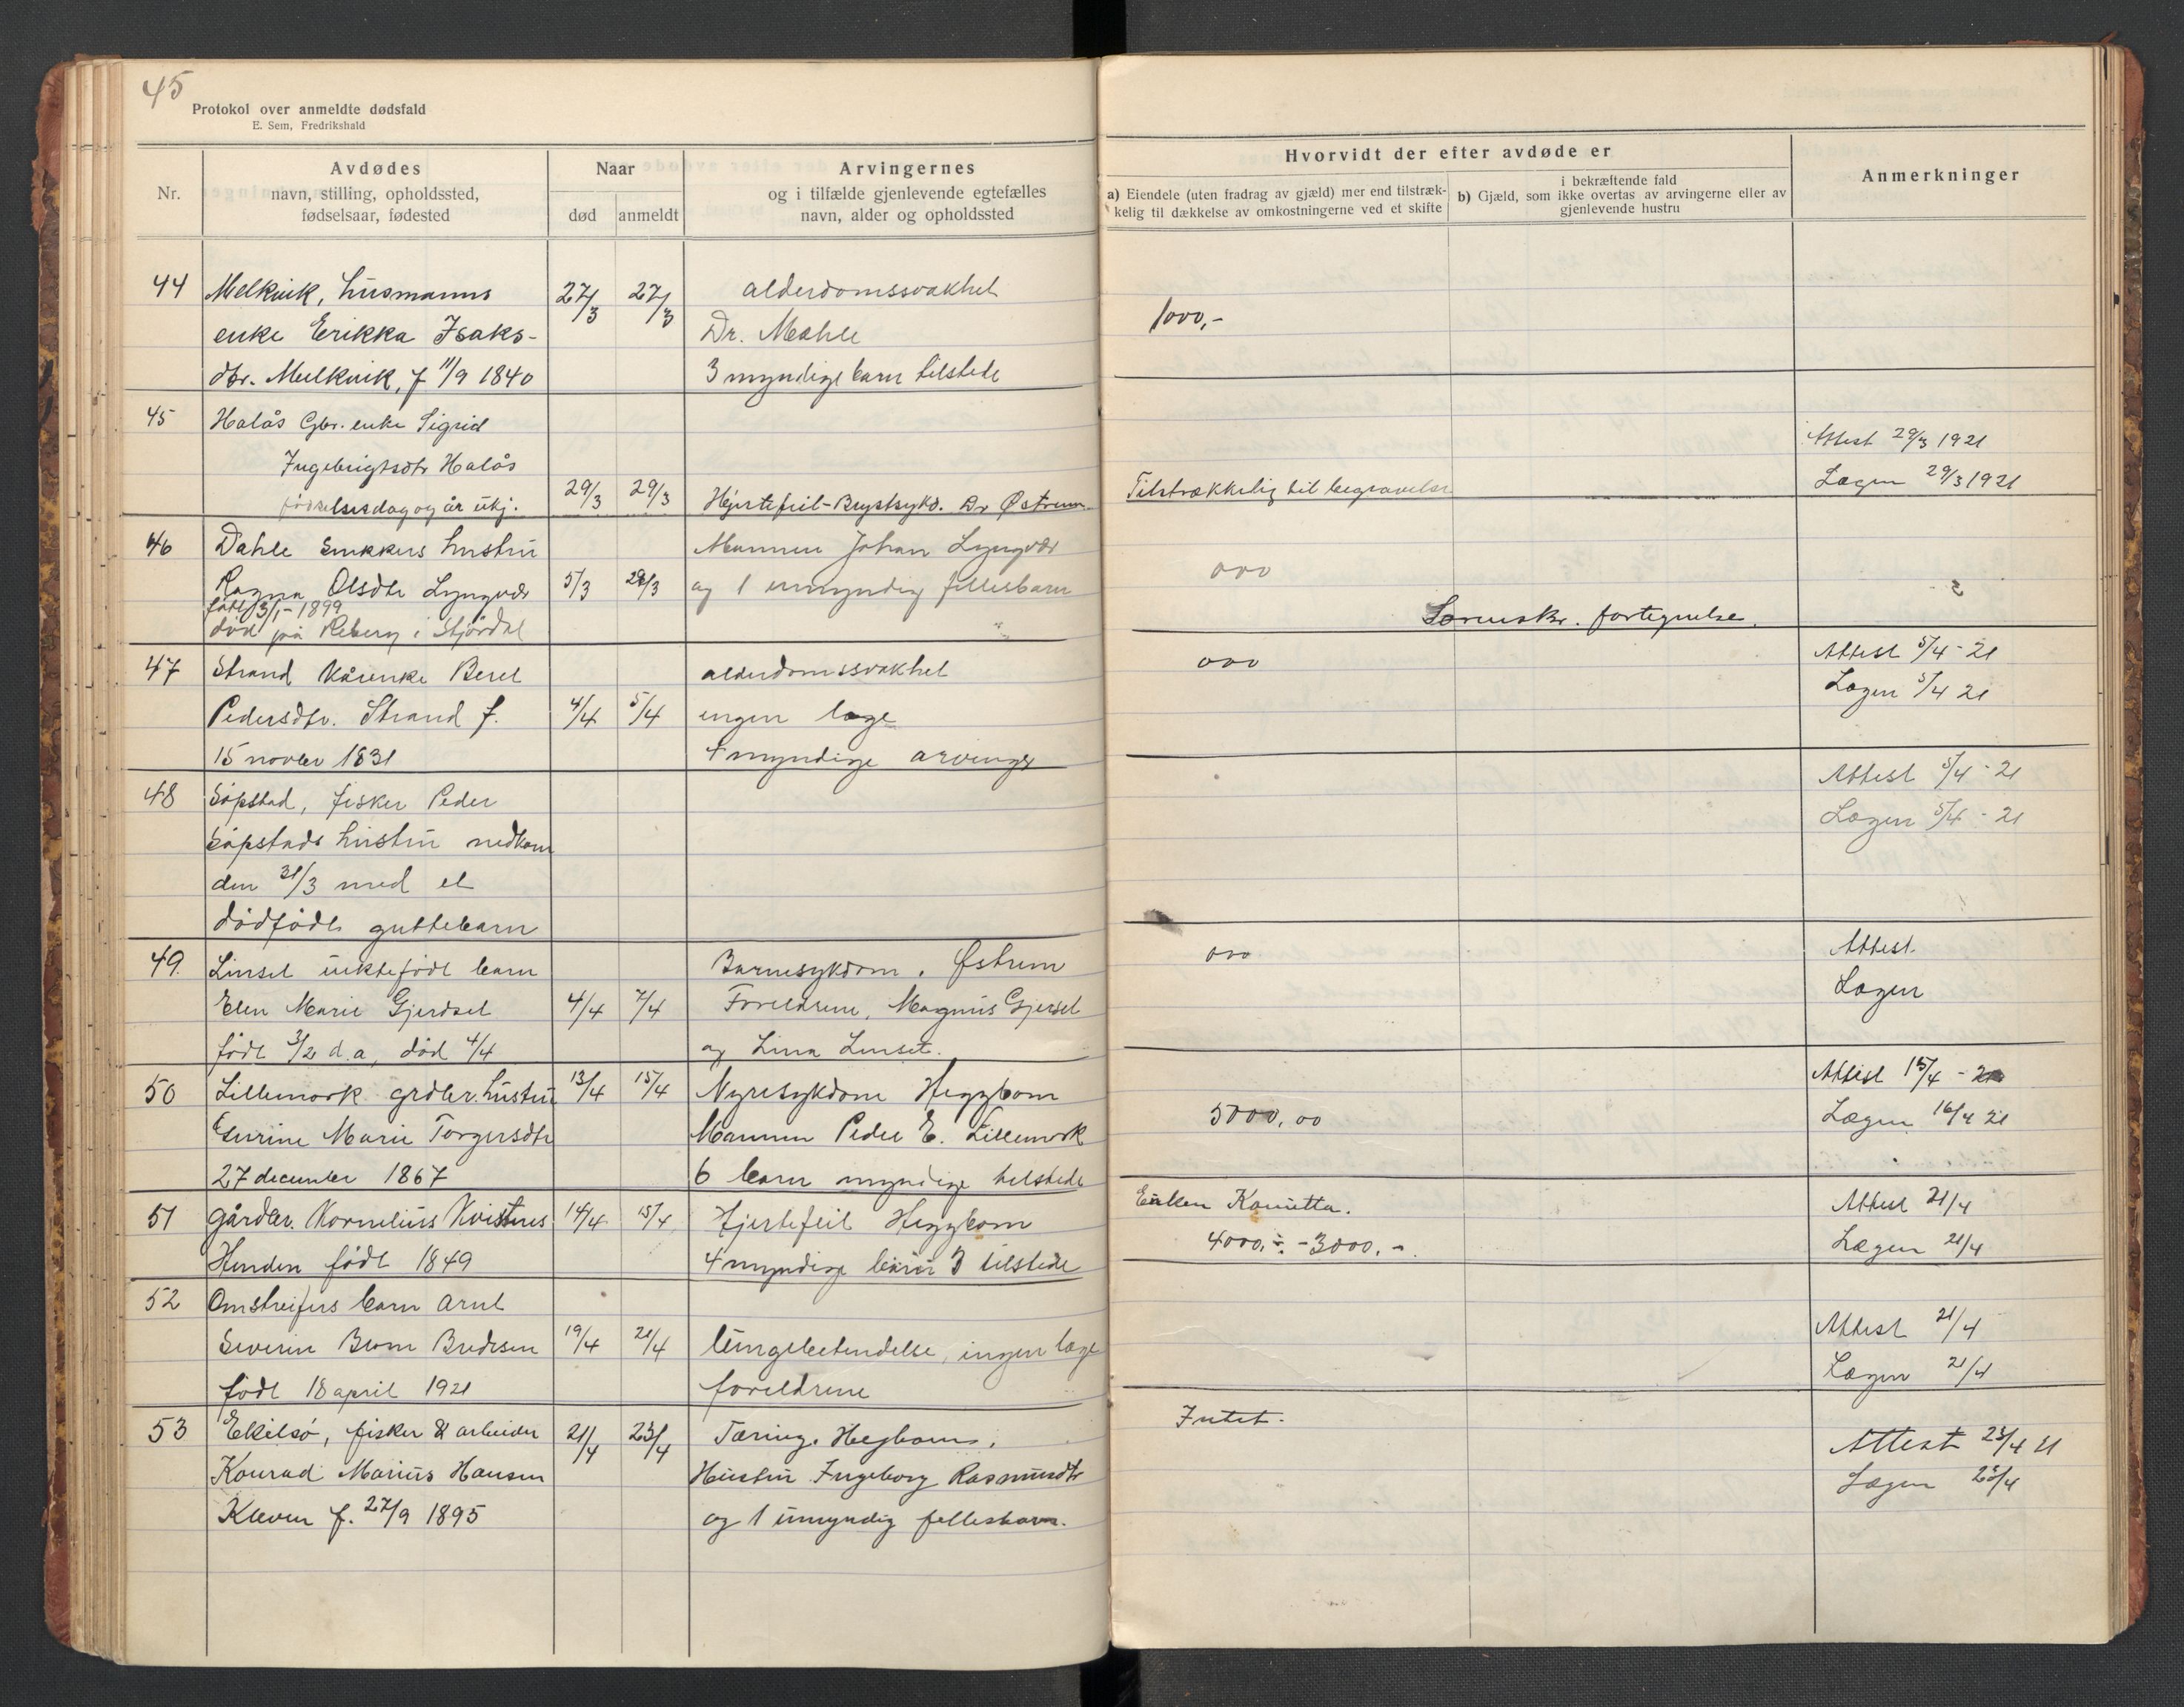 45
Protokol over anmeldte dødsfald
E. Sem, Fredrikshald
Nr.
Avdødes
navn, stilling, opholdssted,
fødselsaar, fødested
Naar
død
anmeldt
Arvingernes
og i tilfælde gjenlevende egtefælles
navn, alder og opholdssted
Hvorvidt der efter avdøde er
a) Eiendele (uten fradrag av gjæld) mer end tilstræk-
kelig til dækkelse av omkostningerne ved et skifte
i bekræftende fald
b) Gjæld, som ikke overtas av arvingerne eller av
gjenlevende hustru
Anmerkninger
44 Melkvik, husmanns 27/3 27/3 alderdomssvakhet
enke Erikka Isaks- Dr. Mæhle 1000,-
dtr. Melkvik, f 11/9 1840 3 myndige barn tilstede
45 Halås Gbr. enke Sigrid Attest 29/3 1921
Ingebrigtsdtr Halås Lægen 29/3 1921
fødselsdag og år ukj. 29/3 29/3 Hjertefeil - Brystsykd. Dr Østrem Tilstrækkelig til begravelse
46 Dahle snekkers hustru Mannen Johan Lyngvær
Ragna Olsdtr Lyngvær 5/3 29/3 og 1 umyndig fellesbarn 000
født 13/1 - 1899
død på Reberg i Stjørdal Lorensk. fortegnelse.
47 Strand kårenke Beret alderdomssvakhet 000 Attest 5/4 - 21
Pedersdtr. Strand f. 4/4 5/4 ingen læge Lægen 5/4 21
15 novber 1831 4 myndige arvinger
48 Søpstad, fisker Peder Attest 5/4 - 21
Søpstads hustru nedkom Lægen 5/4 - 21
den 31/3 med et
dødfødt guttebarn
49. Linset uektefødt barn Barnesykdom. Østrem 000 Attest.
Elen Marie Gjerdset 4/4 7/4 Foreldrene, Magnus Gjerset Lægen
født 3/2 d.a, død 4/4 og Lina Linset.
50 Lillemork grdbr. hustru 13/4 15/4 Nyresykdom Heggbom Attest 15/4 - 21
Gurine Marie Torgersdtr Mannen Peder E. Lillemork 5000,00 Lægen 16/4 21
27 december 1867 6 barn myndige tilstede
51 gårdbr. Kornelius Kvistnes 14/4 15/4 Hjertefeil Heggbom Enken Attest 21/4
Henden født 1849 4 myndige barn 3 tilstede 4000,- - 3000,-. Lægen 21/4
52 Omstreifers barn Arnt
Severin Brom Bredesen 19/4 21/4 lungebetendelse, ingen læge Attest 21/4
født 18 april 1921 foreldrene Lægen 21/4
53 Ekilsø, fisker & arbeider 21/4 23/4 Tæring. Hegbom. Intet. Attest 23/4 21
Konrad Marius Hansen Hustru Ingeborg Rasmusdtr Lægen 23/4
Kleven f. 27/9 1895 og 1 umyndig fellesbarn.